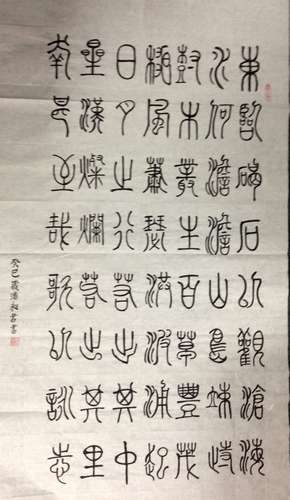 東臨碣石以觀滄海
水何澹澹山島竦峙
樹木叢生百草豐茂
秋風蕭瑟洪波涌起
日月之行若出其中
星漢燦爛若出其里
幸甚至哉歌以詠志
癸巳歲潘書